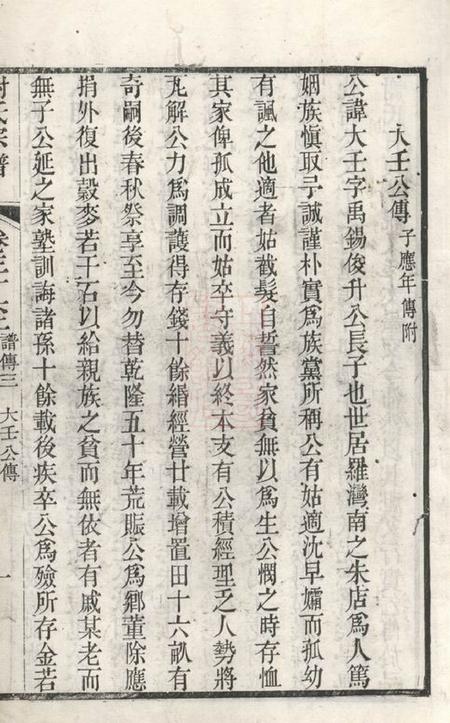 大壬公傳 子應年傳附
公諱大壬字禹錫俊升公長子也世居羅灣南之朱店爲人篤
姻族愼取予誠謹朴實爲族黨所稱公有姑適沈早孀而孤幼
有諷之他適者姑截髮自誓然家貧無以爲生公憫之時存恤
其家俾孤成立而姑卒守義以終本支有公積經理乏人勢將
瓦解公力爲調護得存錢十餘緡經營廿載增置田十六畝有
奇嗣後春秋祭享至今勿替乾隆五十年荒賑公爲鄉董除應
捐外復出穀麥若干石以給親族之貧而無依者有戚某老而
無子公延之家塾訓誨諸孫十餘載後疾卒公爲殮所存金若
氏宗譜
譜傳三 大壬公傳
一